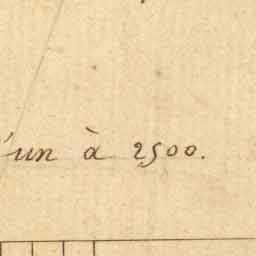 'un à 2500.